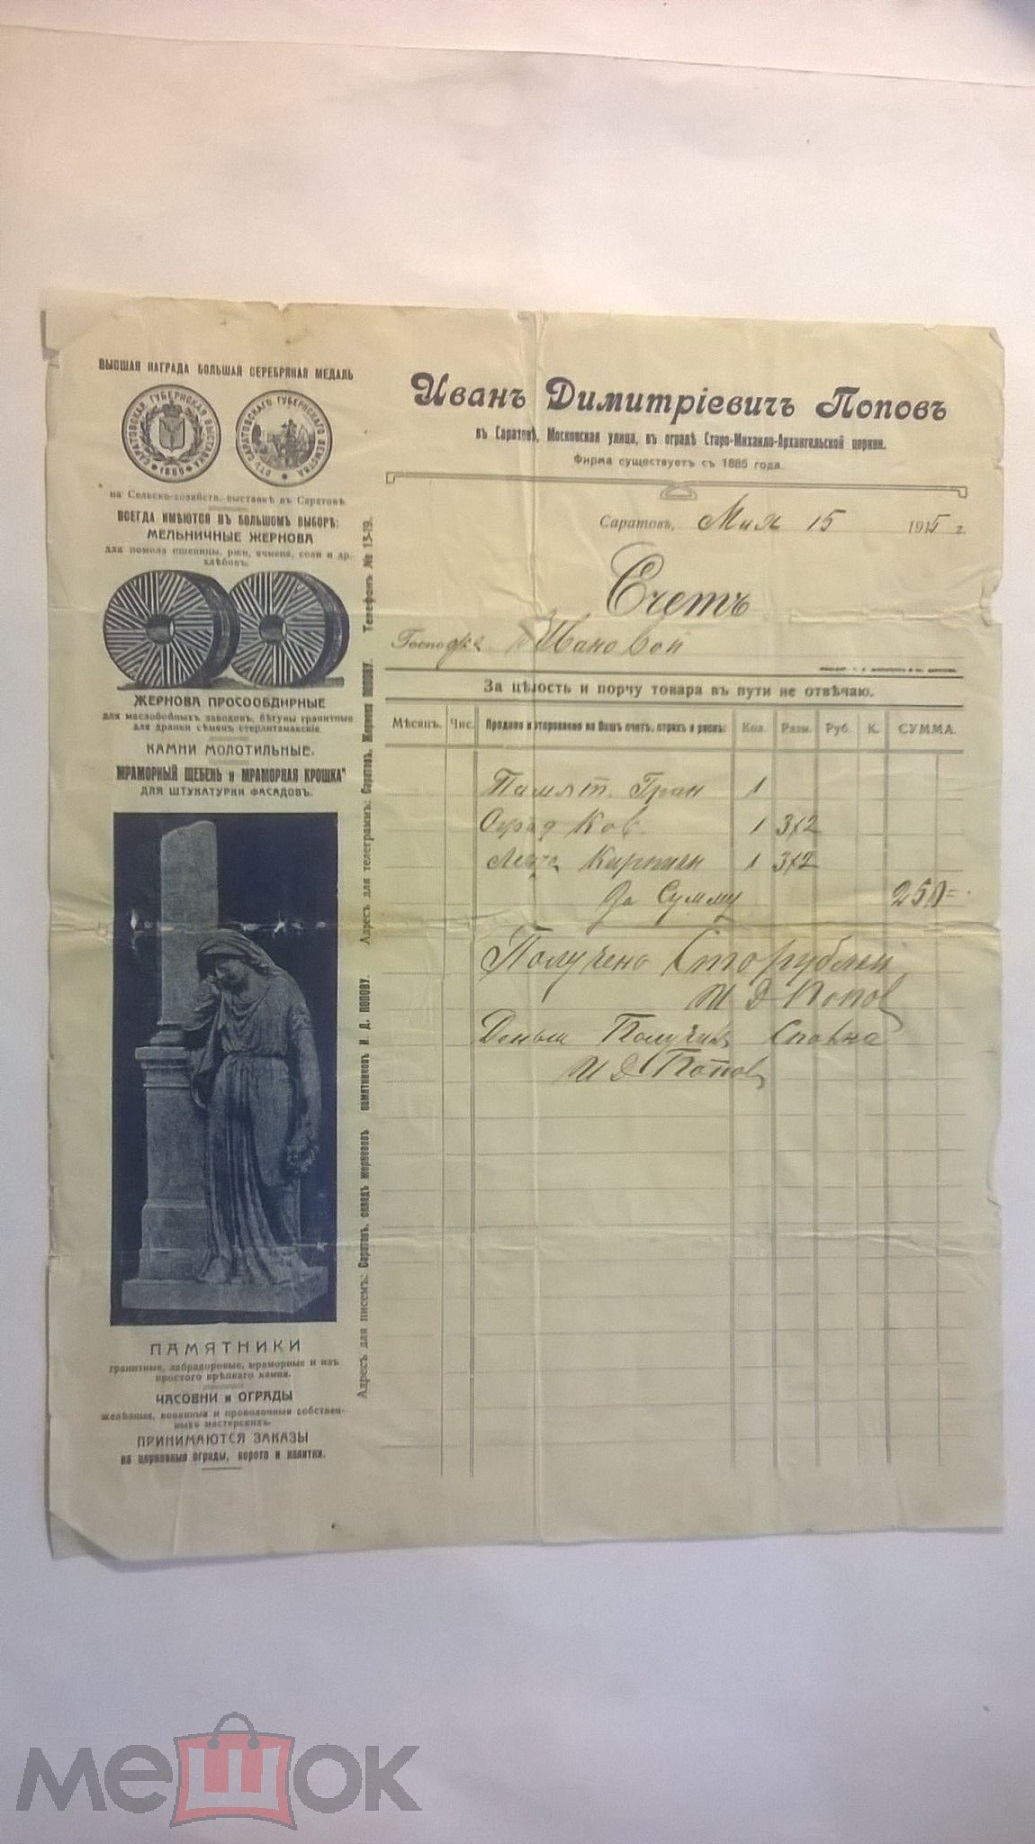 ВЫСШАЯ НАГРАДА БОЛЬШАЯ СЕРЕБРЯНАЯ МЕДАЛЬ
САРАТОВСКАЯ ГУБЕРНСКАЯ ВЫСТАВКА
ОТЪ САРАТОВСКАГО ГУБЕРНСКАГО ЗЕМСТВА
на Сельско-хозяйств. выставкѣ въ Саратовѣ
ВСЕГДА ИМѢЮТСЯ ВЪ БОЛЬШОМЪ ВЫБОРѢ:
МЕЛЬНИЧНЫЕ ЖЕРНОВА
для помола пшеницы, ржи, ячменя, сои и др.
хлѣбовъ.
ЖЕРНОВА ПРОСООБДИРНЫЕ
для маслобойныхъ заводовъ, бѣгуны гранитные
для дранки сѣменъ стерлитамакскіе.
КАМНИ МОЛОТИЛЬНЫЕ.
МРАМОРНЫЙ ЩЕБЕНЬ и МРАМОРНАЯ КРОШКА"
ДЛЯ ШТУКАТУРКИ ФАСАДОВЪ.
ПАМЯТНИКИ
гранитные, лабрадоровые, мраморные и изъ
простого крѣпкаго камня.
ЧАСОВНИ и ОГРАДЫ
желѣзныя, кованныя и проволочныя собствен-
ныхъ мастерскихъ.
ПРИНИМАЮТСЯ ЗАКАЗЫ
на церковныя ограды, ворота и калитки.
Адресъ для писемъ: Саратовъ, складъ жернововъ памятниковъ И. Д. ПОПОВУ. Адресъ для телеграммъ: Саратовъ, Жернова ПОПОВУ. Телефонъ № 13-19.
Иванъ Димитріевичъ Поповъ
въ Саратовѣ, Московская улица, въ оградѣ Старо-Михаило-Архангельской церкви.
Фирма существуетъ съ 1885 года.
Саратовъ, Мая 15 1915 г.
Счетъ
Госпожа Ивановой
За цѣлость и порчу товара въ пути не отвѣчаю.
Мѣсяцъ. Чис. Продано и отправлено на Вашъ счетъ, страхъ и рискъ: Кол. Разм. Руб. К. СУММА.
Памят. Гран 1
Оград Ков 1 3х2
Кирпичн 1 3х2
За Сумму 250=
Получено Сто рублей
И Д Попов
Деньги Получил Сполна
И Д Попов
мешок